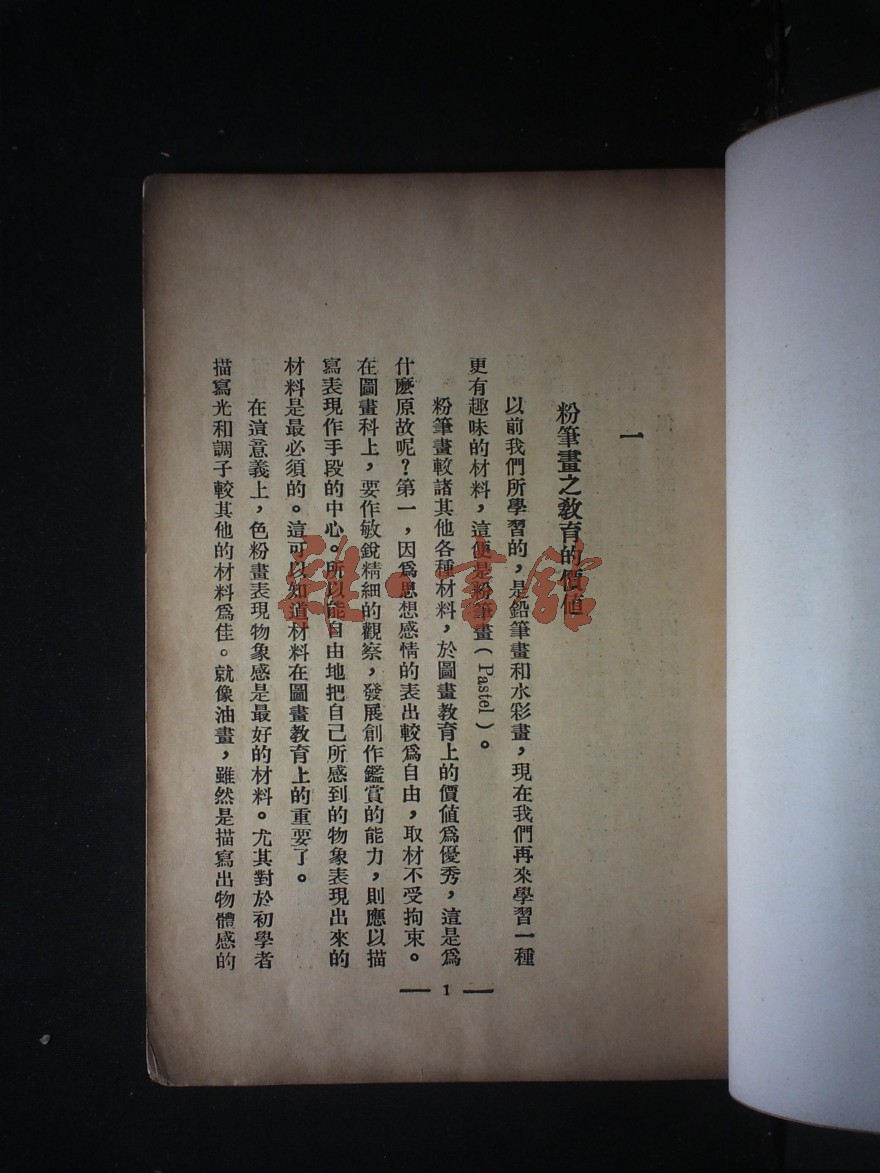 一
粉筆畫之教育的價値
以前我們所學習的，是鉛筆畫和水彩畫，現在我們再來學習一種
更有趣味的材料，這便是粉筆畫(Pastel)。
粉筆畫較諸其他各種材料，於圖畫教育上的價値爲優秀，這是爲
什麽原故呢？第一，因爲思想感情的表出較爲自由，取材不受拘束。
在圖畫科上，要作敏銳精細的觀察，發展創作鑑賞的能力，則應以描
寫表現作手段的中心。所以能自由地把自己所感到的物象表現出來的
材料是最必須的。這可以知道材料在圖畫教育上的重要了。
在這意義上，色粉畫表現物象感是最好的材料。尤其對於初學者
描寫光和調子較其他的材料爲佳。就像油畫，雖然是描寫出物體感的
— 1 —
雜·書館